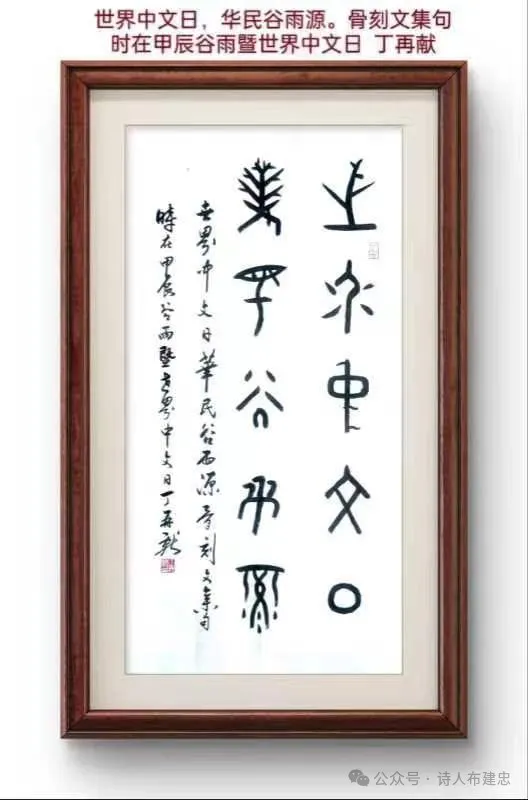 世界中文日，华民谷雨源。骨刻文集句
时在甲辰谷雨暨世界中文日 丁再献
世界中文日
華民谷雨源
世界中文日華民谷雨源骨刻文集句
時在甲辰谷雨暨世界中文日丁再献
公众号·诗人布建忠